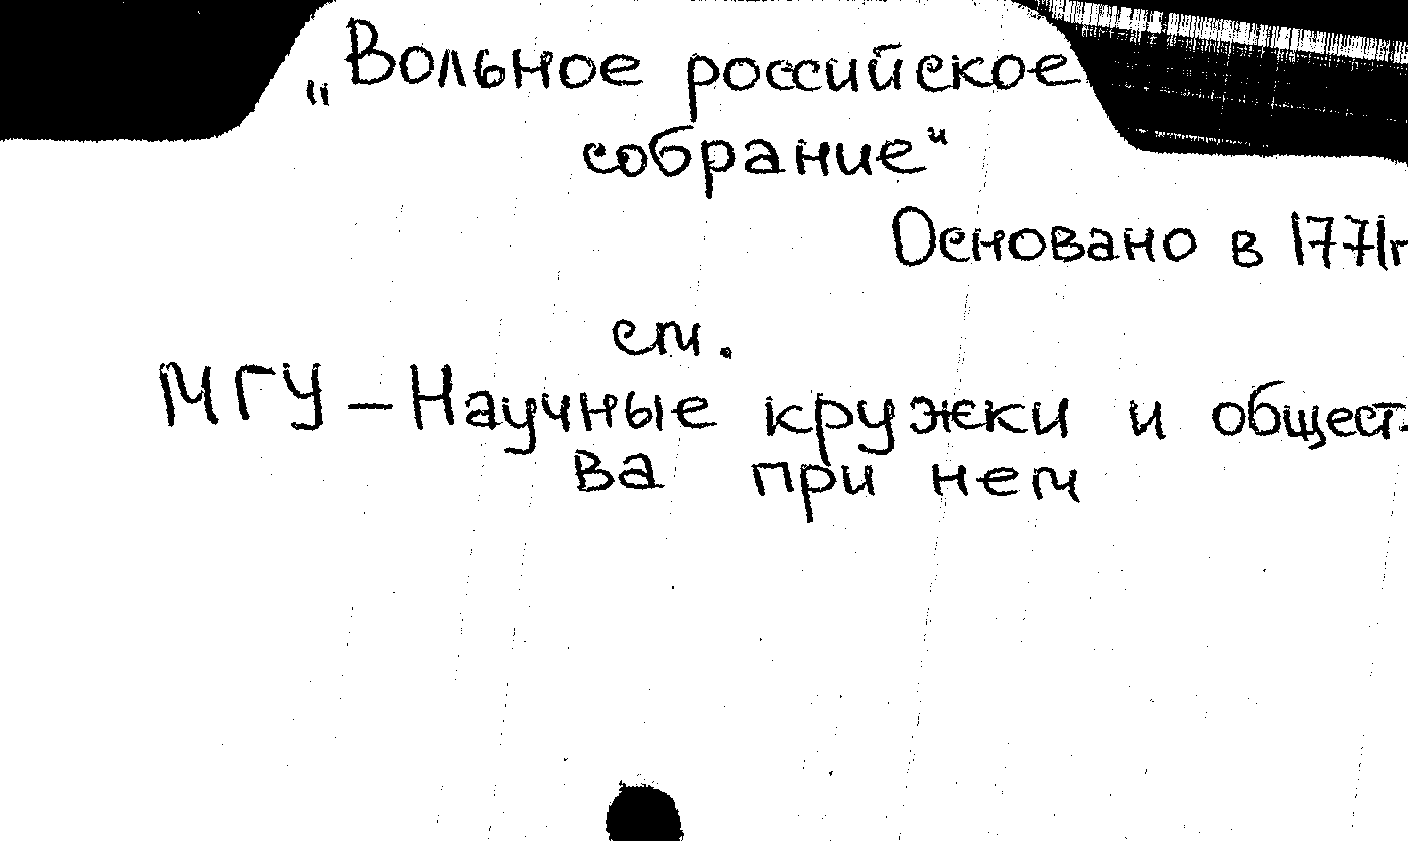 „Вольное российское
собрание"
Основано в 1771г
см.
МГУ – Научные кружки и общест-
ва при нем